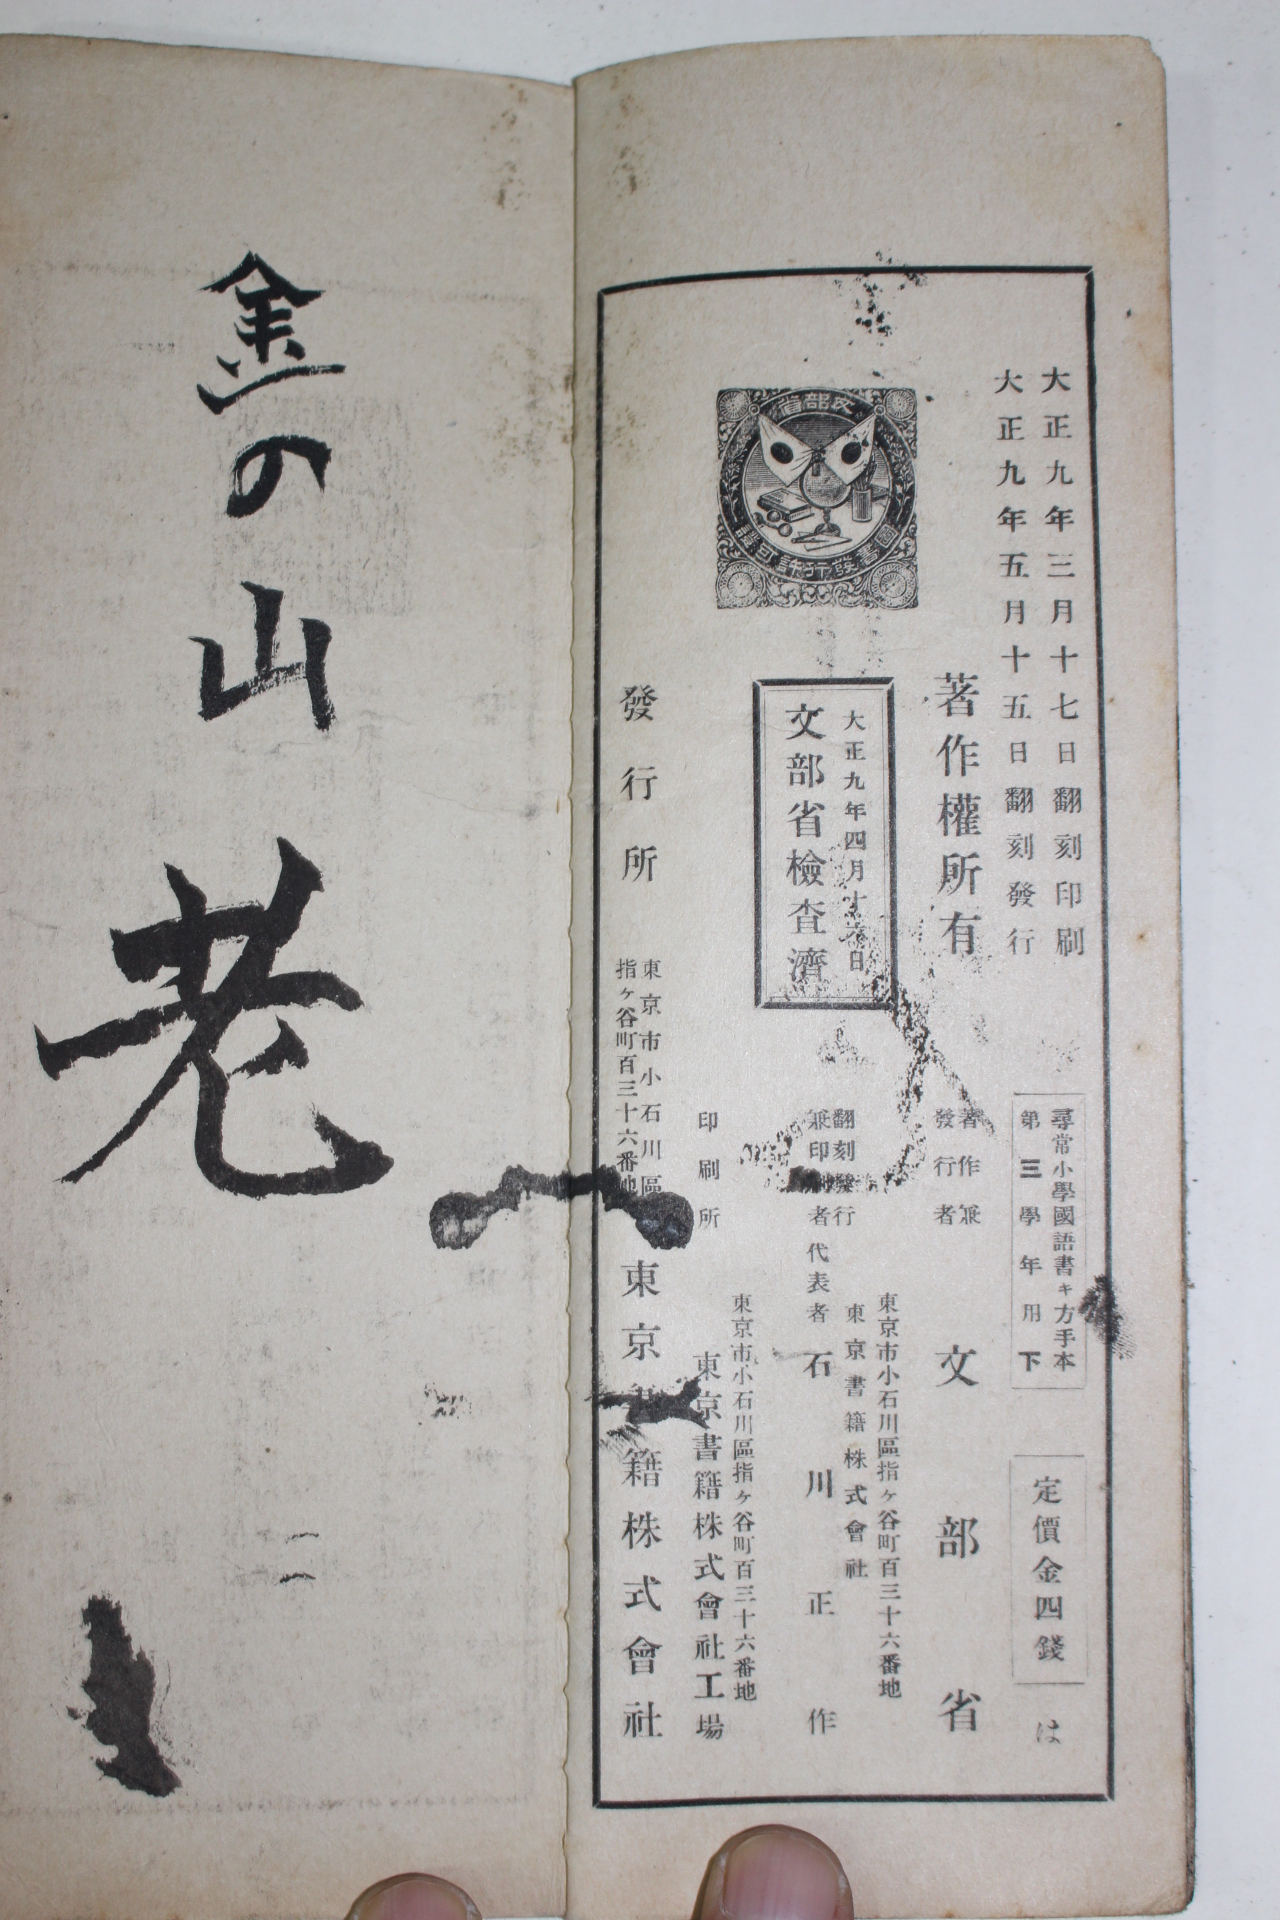 大正九年三月十七日翻刻印刷
大正九年五月十五日翻刻發行
尋常小學國語書キ方手本
第三學年用下
定價金四錢
は
著作權所有
著作兼
發行者
文部省
文部省
圖書發行許可證
大正九年四月十六日
文部省檢査濟
翻刻發行
兼印刷者
東京市小石川區指ヶ谷町百三十六番地
東京書籍株式會社
代表者石川正作
印刷所
東京市小石川區指ヶ谷町百三十六番地
東京書籍株式會社工場
發行所
東京市小石川區
指ヶ谷町百三十六番地
東京書籍株式會社
金の山
老